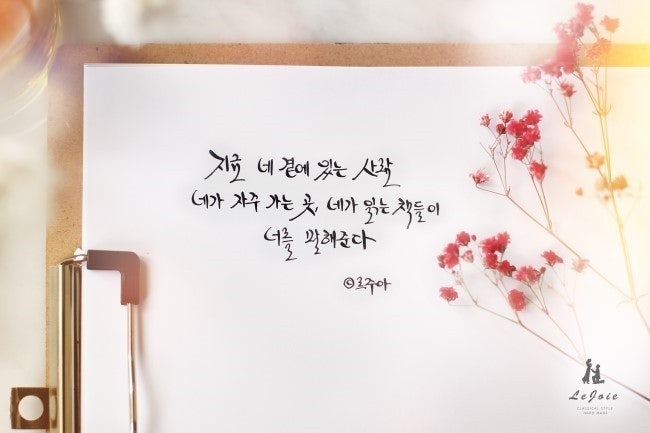 지금 네 곁에 있는 사람
네가 자주 가는 곳, 네가 읽는 책들이
너를 말해준다
©르주아
LeJoie
CLASSICAL STYLE
HAND MADE